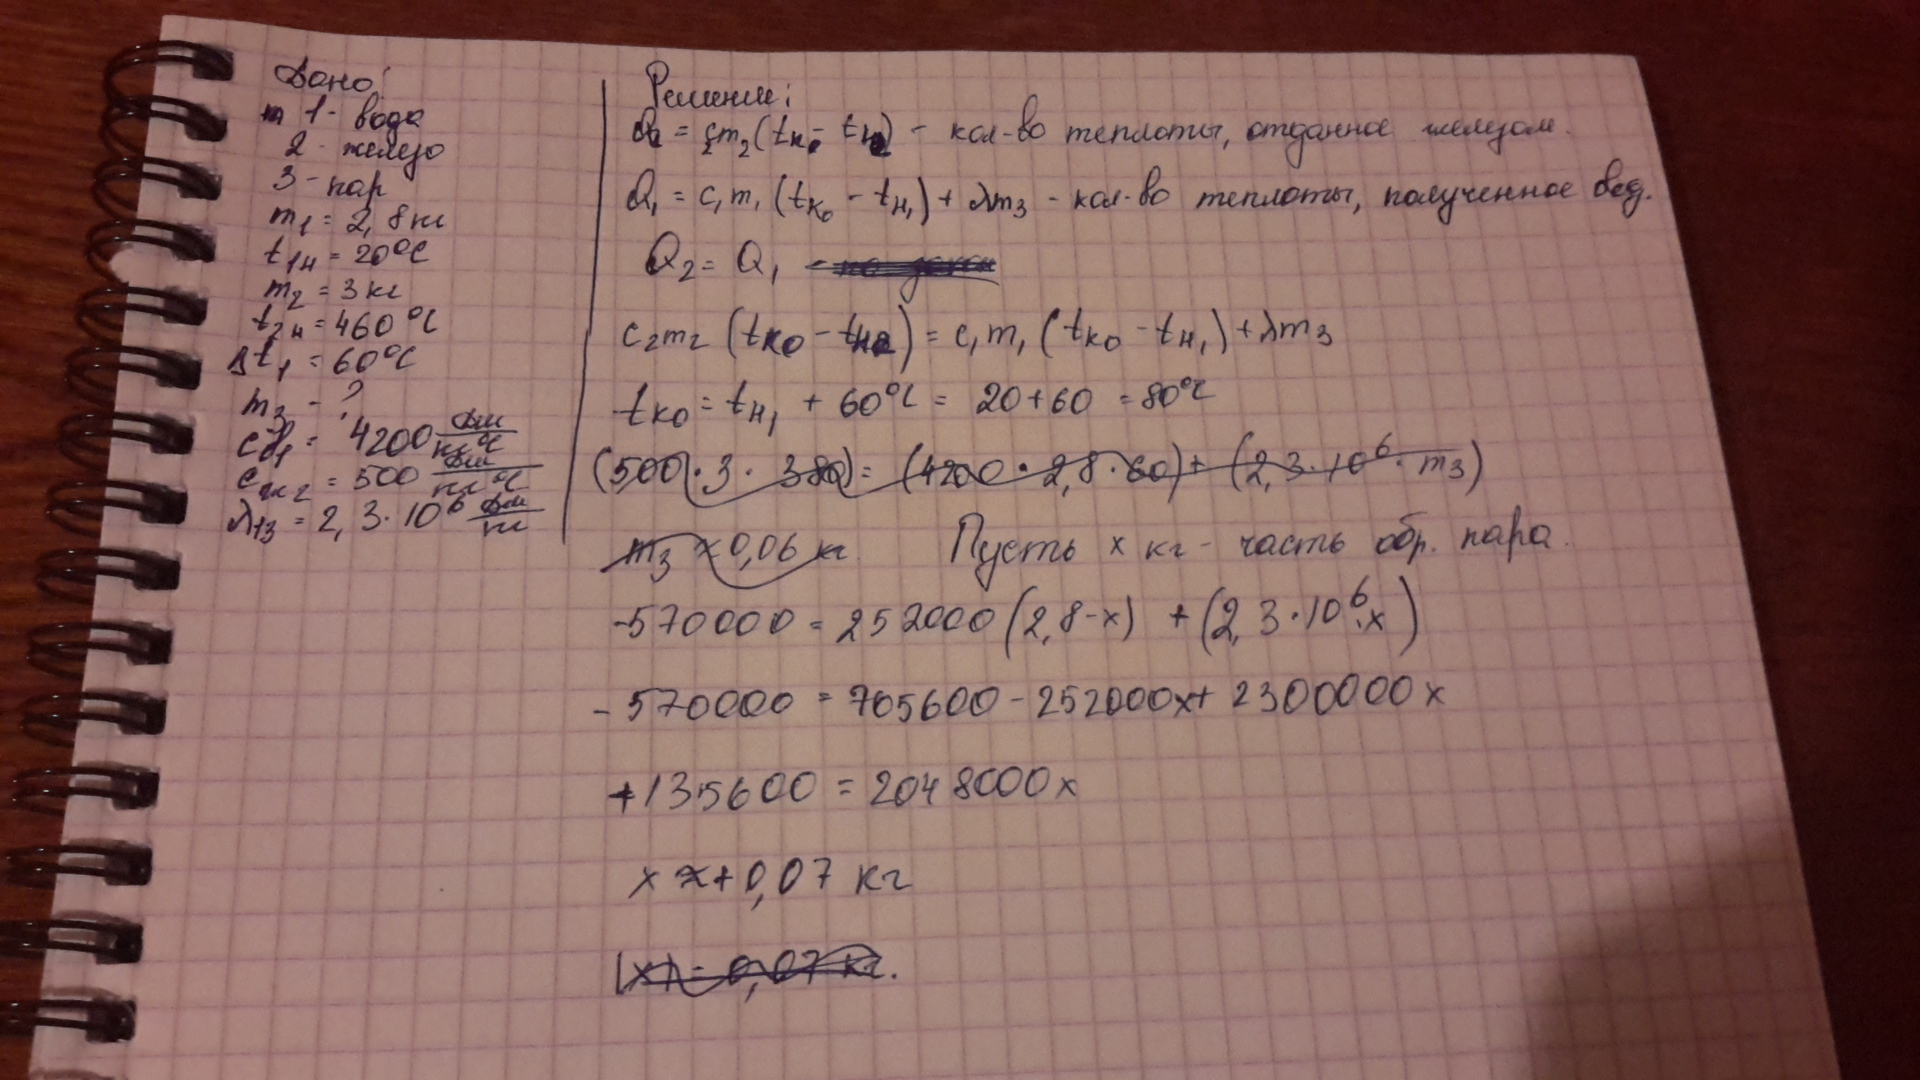 Дано:
m 1 - вода
2 - железо
3 - пар
m₁ = 2,8 кг
t₁н = 20°C
m₂ = 3 кг
t₂н = 460°C
Δt₁ = 60°C
m₃ - ?
cв₁ = 4200 Дж/кг°C
cж₂ = 500 Дж/кг°C
λ₃ = 2,3·10⁶ Дж/кг
Решение:
Q₂ = c₂m₂(tк₀ - tн₂) - кол-во теплоты, отданное железом.
Q₁ = c₁m₁(tк₀ - tн₁) + λm₃ - кол-во теплоты, полученное вод.
Q₂ = Q₁
c₂m₂(tк₀ - tн₂) = c₁m₁(tк₀ - tн₁) + λm₃
tк₀ = tн₁ + 60°C = 20+60 = 80°C
(500·3·380) = (4200·2,8·60) + (2,3·10⁶·m₃)
m₃ ≈ 0,06 кг. Пусть x кг - часть обр. пара.
-570000 = 252000(2,8-x) + (2,3·10⁶·x)
-570000 = 705600 - 252000x + 2300000x
+135600 = 2048000x
x ≈ +0,07 кг
|x| = 0,07 кг.